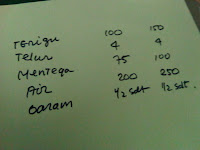 Terigu 100 150
Telur 4 4
Mentega 75 100
Air 200 250
Garam 1/2 sdt 1/2 sdt.